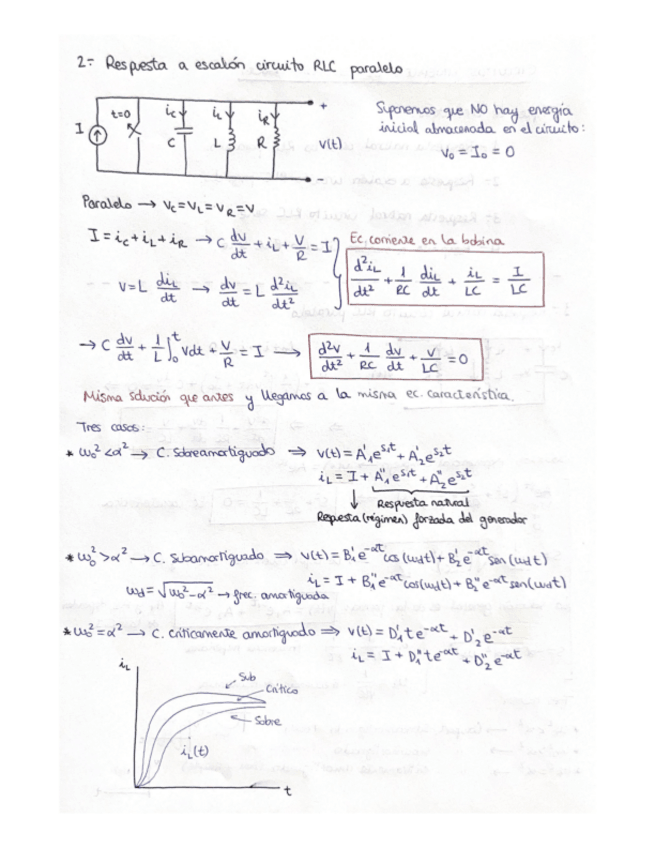 2= Respuesta a escalón circuito RLC paralelo
I t=0 ic iL iR + C L R V(t) −
Suponemos que NO hay energía
inicial almacenada en el circuito:
V₀ = I₀ = 0
Paralelo → Vc = VL = VR = V
I = ic + iL + iR → C dv/dt + iL + V/R = I
Ec. corriente en la bobina
V = L diL/dt → dv/dt = L d²iL/dt²
d²iL/dt² + 1/RC diL/dt + iL/LC = I/LC
→ C dv/dt + 1/L ∫₀ᵗ Vdt + V/R = I → d²v/dt² + 1/RC dv/dt + V/LC = 0
Misma solución que antes y llegamos a la misma ec. característica.
Tres casos:
* ω₀² < α² → C. Sobreamortiguado ⇒ V(t) = A₁' e^s₁t + A₂' e^s₂t
iL = I + A₁'' e^s₁t + A₂'' e^s₂t
↓ Respuesta natural
Respesta (régimen) forzada del generador
* ω₀² > α² → C. Subamortiguado ⇒ V(t) = B₁' e^-αt cos(ωdt) + B₂' e^-αt sen(ωdt)
iL = I + B₁'' e^-αt cos(ωdt) + B₂'' e^-αt sen(ωdt)
ωd = √ω₀² − α² → frec. amortiguada
* ω₀² = α² → C. Críticamente amortiguado ⇒ V(t) = D₁' t e^-αt + D₂' e^-αt
iL = I + D₁'' t e^-αt + D₂'' e^-αt
iL
Sub
Crítico
Sobre
iL(t)
t